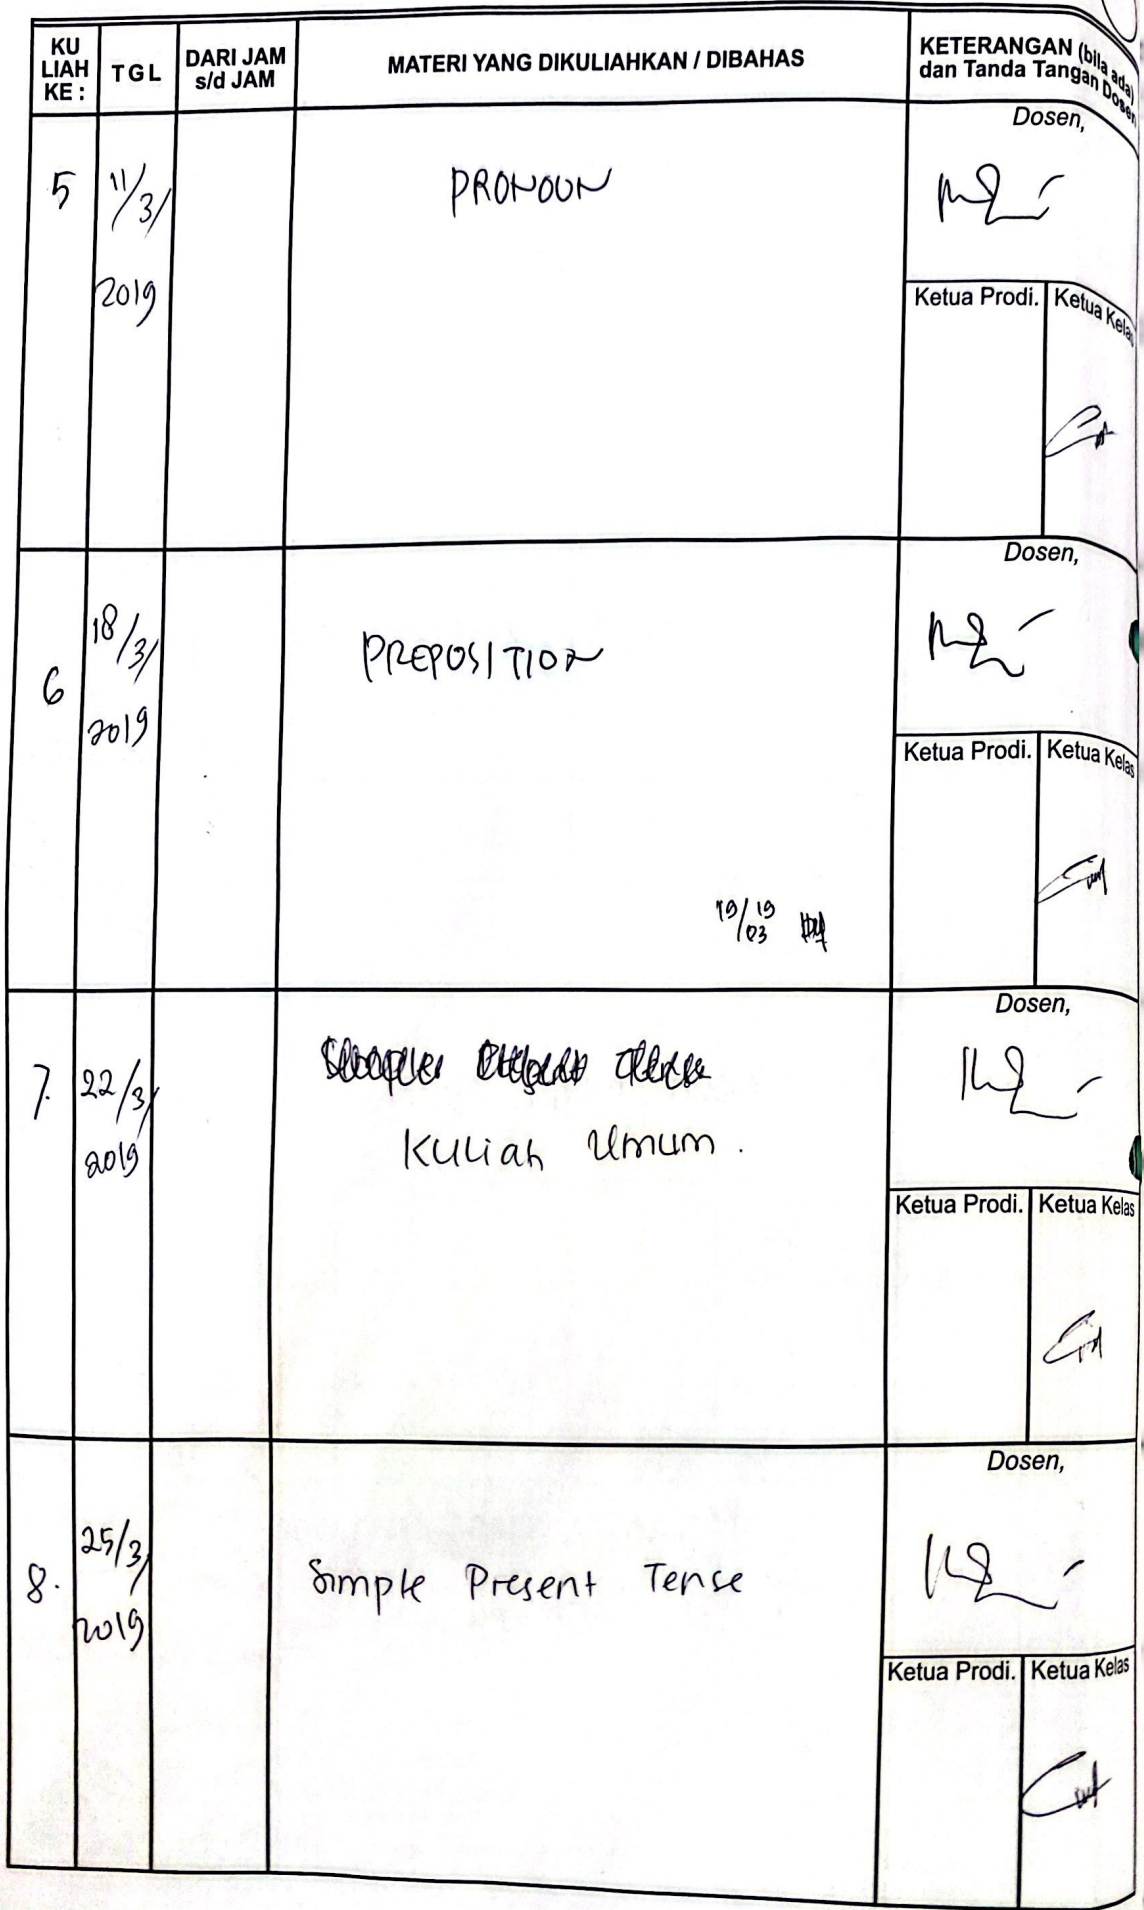 KU
LIAH
KE :
TGL
DARI JAM
s/d JAM
MATERI YANG DIKULIAHKAN / DIBAHAS
KETERANGAN (bila ada)
dan Tanda Tangan Dosen
5
11/3/
2019
PRONOUN
Dosen,
Ketua Prodi.
Ketua Kelas
6
18/3/
2019
PREPOSITION
19/19
03
Dosen,
Ketua Prodi.
Ketua Kelas
7.
22/3/
2019
Kuliah Umum.
Dosen,
Ketua Prodi.
Ketua Kelas
8.
25/3/
2019
Simple Present Tense
Dosen,
Ketua Prodi.
Ketua Kelas